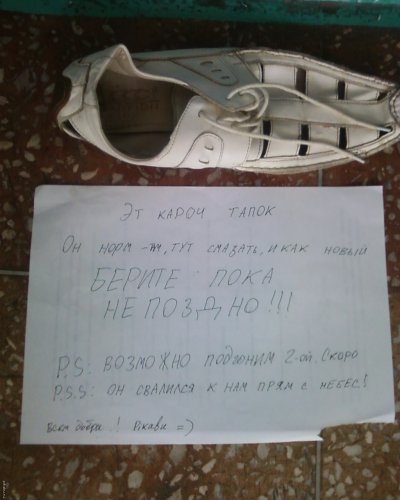 ЭТ КАРОЧ ТАПОК
ОН НОРМ ТУТ СМАЗАТЬ, И КАК НОВЫЙ
БЕРИТЕ ПОКА
НЕ ПОЗДНО!!!
P.S: ВОЗМОЖНО ПОДГОНИМ 2-ОЙ. СКОРО
P.S.S: ОН СВАЛИЛСЯ К НАМ ПРЯМ С НЕБЕС!
Всем добра!
=)